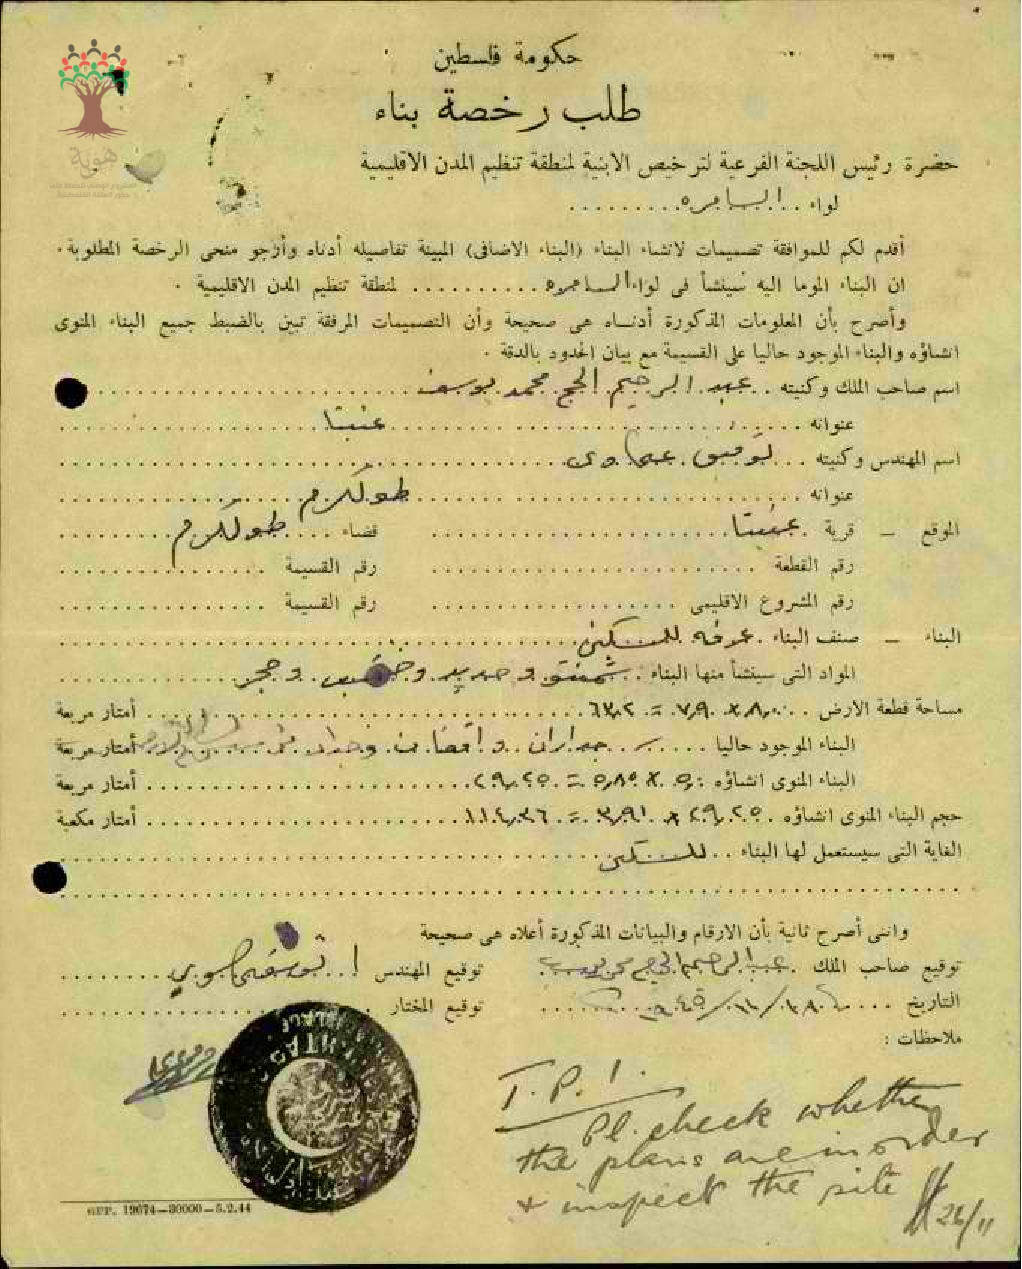 حكومة فلسطين
طلب رخصة بناء
حضرة رئيس اللجنة الفرعية لترخيص الابنية لمنطقة تنظيم المدن الاقليمية
لواء . . السامره . . . . . . . . .
أقدم لكم للموافقة تصميمات لانشاء البناء (البناء الاضافى) المبينة تفاصيله أدناه وأرجو منحى الرخصة المطلوبة .
ان البناء الموما اليه سينشأ فى لواء السامره . . . . . . . . . . لمنطقة تنظيم المدن الاقليمية .
وأصرح بأن المعلومات المذكورة أدناه هى صحيحة وأن التصميمات المرفقة تبين بالضبط جميع البناء المنوى
انشاؤه والبناء الموجود حاليا على القسيمة مع بيان الحدود بالدقة .
اسم صاحب الملك وكنيته . . عبد الرحيم الحج محمد يوسف
عنوانه عنبتا
اسم المهندس وكنيته . . . توفيق
عنوانه طولكرم
الموقع – قرية . عنبتا قضاء طولكرم
رقم القطعة رقم القسيمة
رقم المشروع الاقليمى رقم القسيمة
البناء – صنف البناء . غرفه للسكن
المواد التى سينشأ منها البناء : شمنتو وحديد وخشب وحجر
مساحة قطعة الارض . . ٨,٠٠ x ٧,٩٠ = ٦٣,٢ أمتار مربعة
البناء الموجود حاليا جداران أمتار مربعة
البناء المنوى انشاؤه : ٥,٠ x ٥,٨٥ = ٢٩,٢٥ أمتار مربعة
حجم البناء المنوى انشاؤه . ٢٩,٢٥ x ٣,٩١ = ١١٤,٣٦ أمتار مكعبة
الغاية التى سيستعمل لها البناء . . للسكن
واننى أصرح ثانية بأن الارقام والبيانات المذكورة أعلاه هى صحيحة
توقيع صاحب الملك . عبد الرحيم الحج محمد يوسف توقيع المهندس
التاريخ ١٩٤٥ توقيع المختار
ملاحظات :
T.P.1.
Pl. check whether
the plans are in order
& inspect the site
26/11
GPP. 19674—30000—5.2.44
هوية